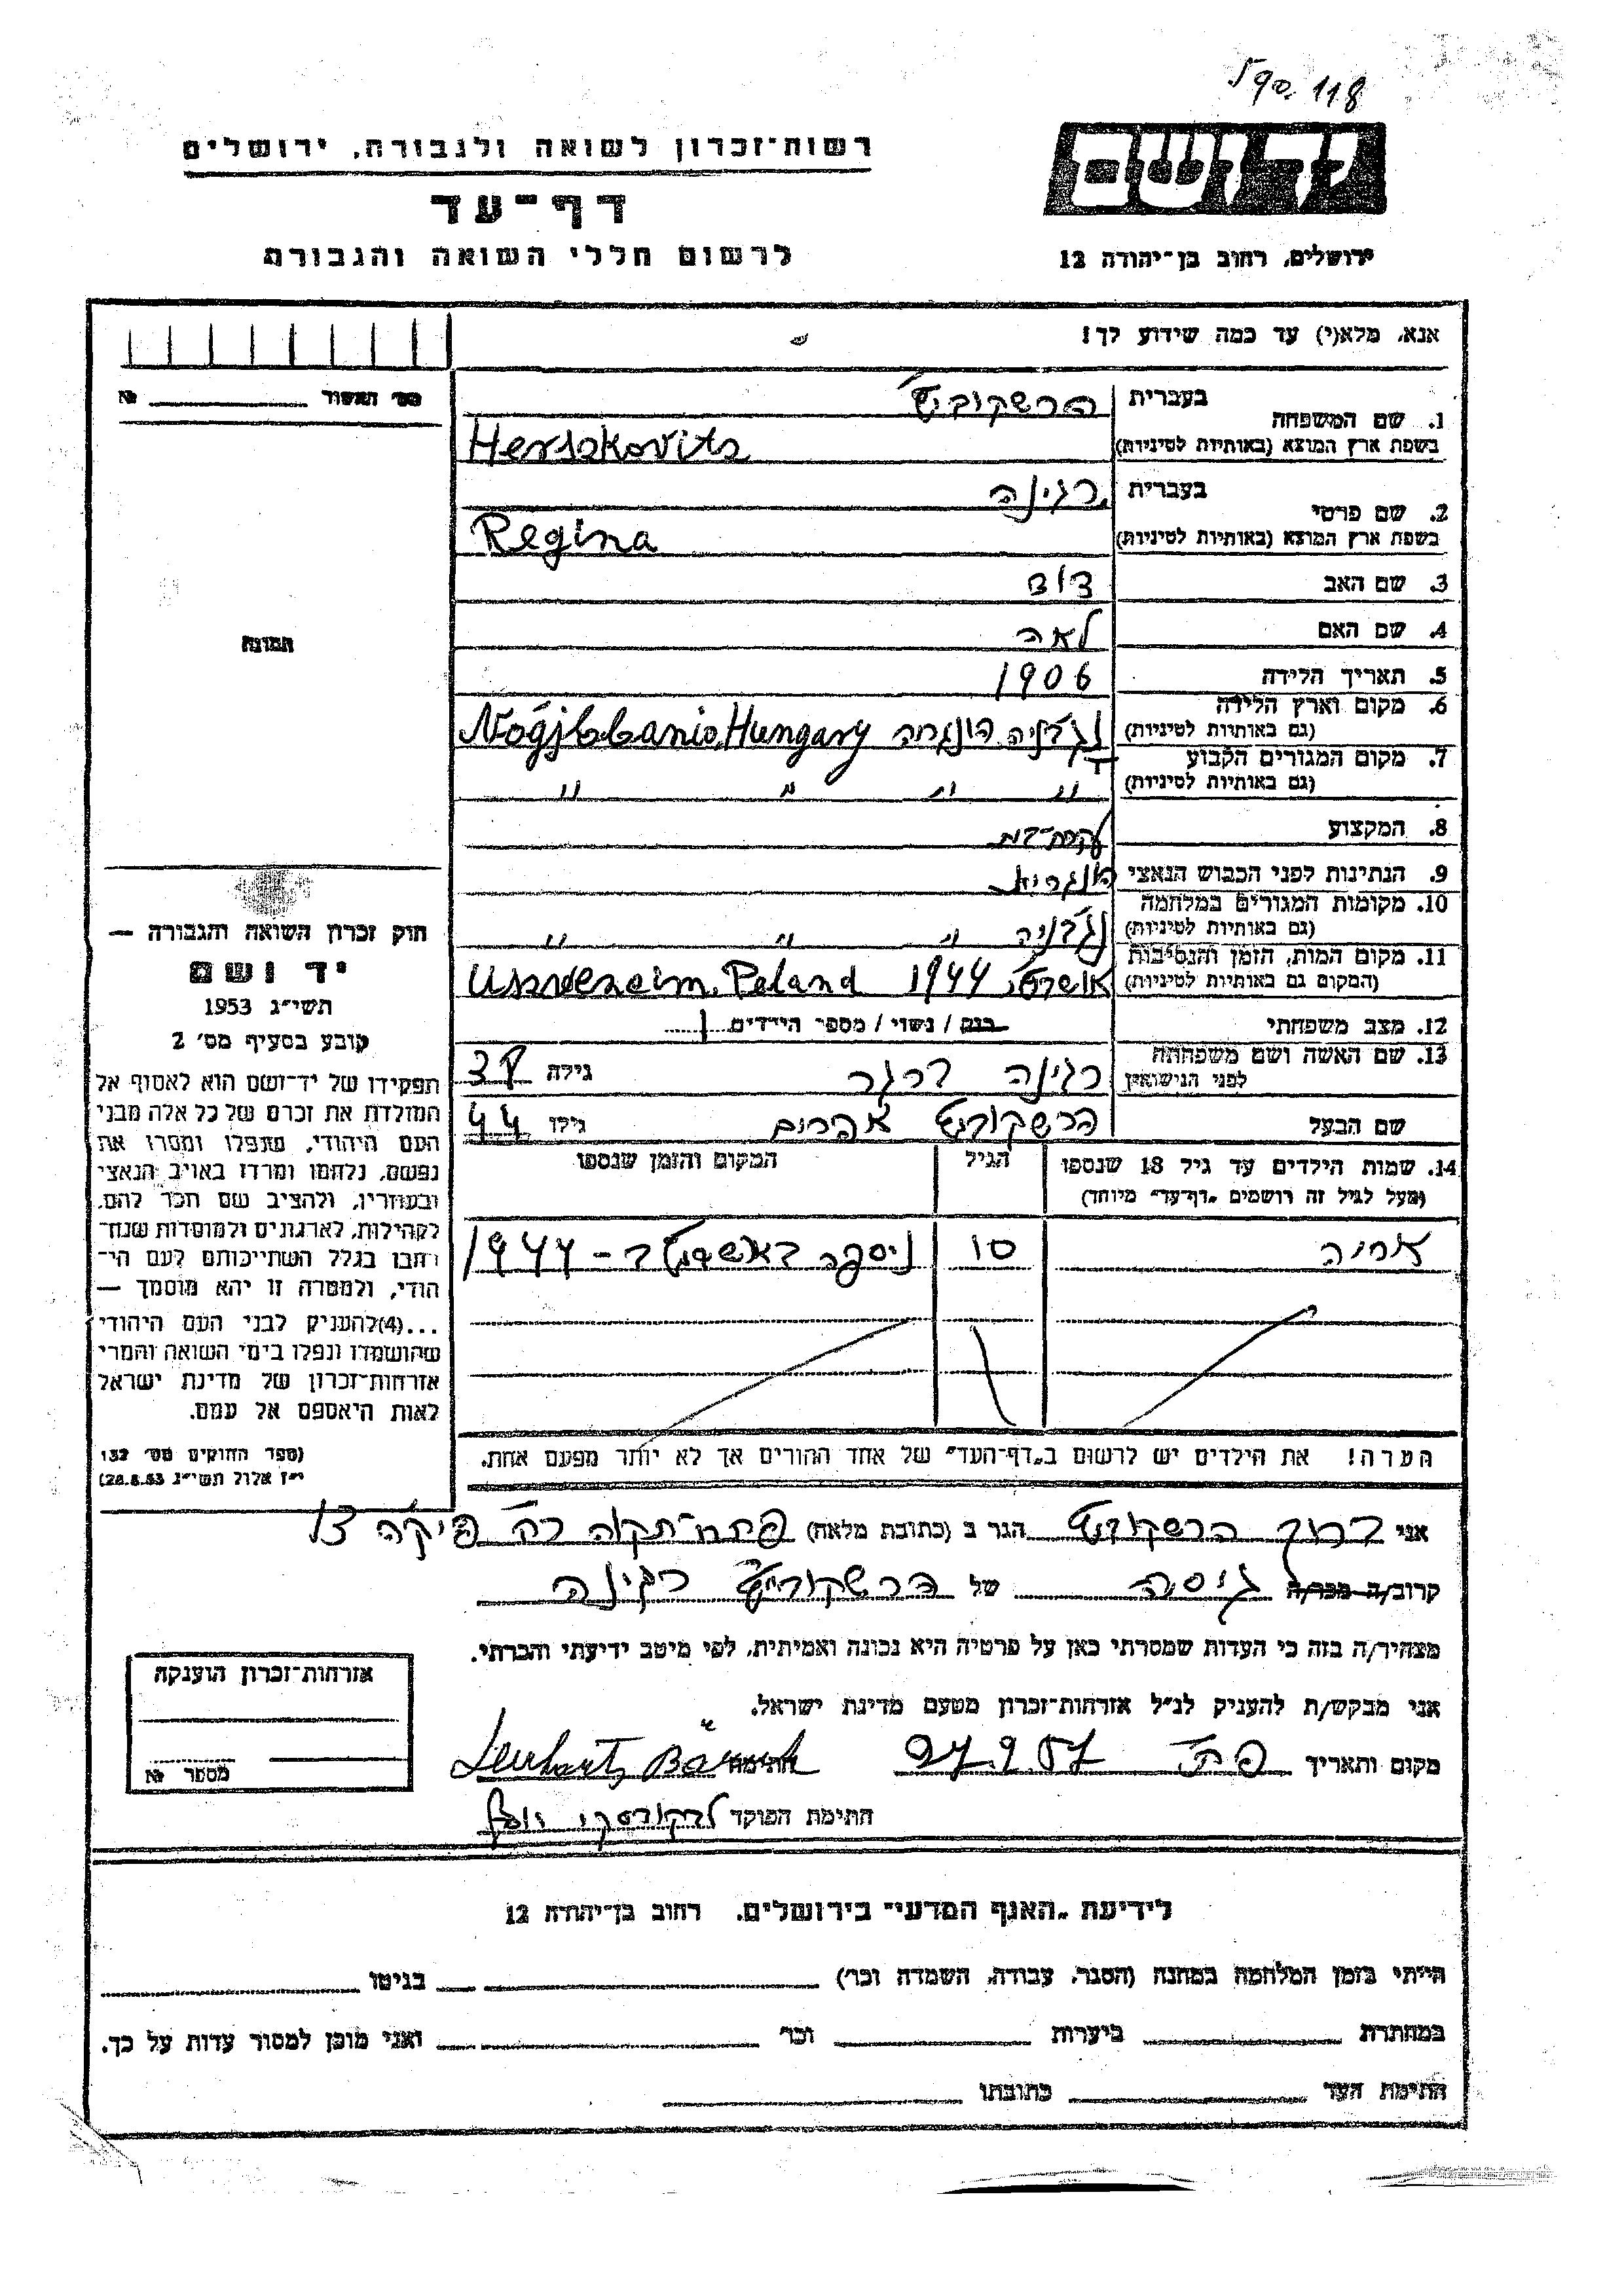 118
רשות־זכרון לשואה ולגבורה, ירושלים
דף־עד
לרשום חללי השואה והגבורה
יד ושם
ירושלים, רחוב בן־יהודה 12
אנא, מלא(י) עד כמה שידוע לך!
מס' האשור №
1. שם המשפחה
בעברית הרשקוביץ
בשפת ארץ המוצא (באותיות לטיניות) Herskovits
2. שם פרטי
בעברית רגינה
בשפת ארץ המוצא (באותיות לטיניות) Regina
3. שם האב דוד
4. שם האם לאה
5. תאריך הלידה 1906
6. מקום וארץ הלידה
(גם באותיות לטיניות) הונגריה Hungary
7. מקום המגורים הקבוע
(גם באותיות לטיניות) " " " "
8. המקצוע עקרת־בית
9. הנתינות לפני הכבוש הנאצי הונגרית
10. מקומות המגורים במלחמה
(גם באותיות לטיניות) " " "
11. מקום המות, הזמן והנסיבות
(המקום גם באותיות לטיניות) 1944 Poland
12. מצב משפחתי רווק / נשוי / מספר הילדים 1
13. שם האשה ושם משפחתה
לפני הנישואין רגינה גילה 38
שם הבעל הרשקוביץ אברהם גילו 44
14. שמות הילדים עד גיל 18 שנספו הגיל המקום והזמן שנספו
(מעל לגיל זה רושמים „דף־עד" מיוחד)
10 ניספה 1944
הערה! את הילדים יש לרשום ב„דף־העד" של אחד ההורים אך לא יותר מפעם אחת.
תמונה
חוק זכרון השואה והגבורה —
יד ושם
תשי"ג 1953
קובע בסעיף מס' 2
תפקידו של יד־ושם הוא לאסוף אל
המולדת את זכרם של כל אלה מבני
העם היהודי, שנפלו ומסרו את
נפשם, נלחמו ומרדו באויב הנאצי
ובעוזריו, ולהציב שם וזכר להם,
לקהילות, לארגונים ולמוסדות שנח־
רבו בגלל השתייכותם לעם הי־
הודי, ולמטרה זו יהא מוסמך —
...(4)להעניק לבני העם היהודי
שהושמדו ונפלו בימי השואה והמרי
אזרחות־זכרון של מדינת ישראל
לאות היאספם אל עמם.
(ספר החוקים מס' 132
י"ז אלול תשי"ג 28.8.53)
אני ברוך הרשקוביץ הגר ב (כתובת מלאה) פתח־תקוה רח' פיקה 13
קרוב/ה מכר/ה גיסה של הרשקוביץ רגינה
מצהיר/ה בזה כי העדות שמסרתי כאן על פרטיה היא נכונה ואמיתית, לפי מיטב ידיעתי והכרתי.
אני מבקש/ת להעניק לנ"ל אזרחות־זכרון מטעם מדינת ישראל.
מקום ותאריך פ"ת 27.9.57 חתימה
חתימת הפוקד
אזרחות־זכרון הוענקה
מספר №
לידיעת „האגף המדעי" בירושלים, רחוב בן־יהודה 12
הייתי בזמן המלחמה במחנה (הסגר, עבודה, השמדה וכו') בגיטו
במחתרת ביערות וכו' ואני מוכן למסור עדות על כך.
חתימת העד כתובתו